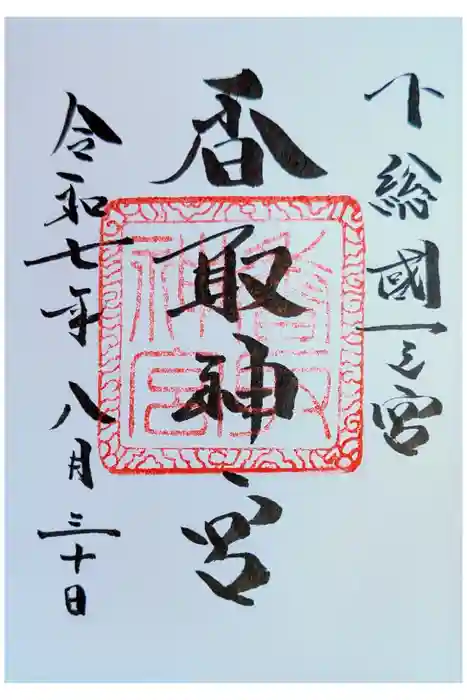 下総國一之宮
香取神宮
香取神宮
令和七年八月三十日